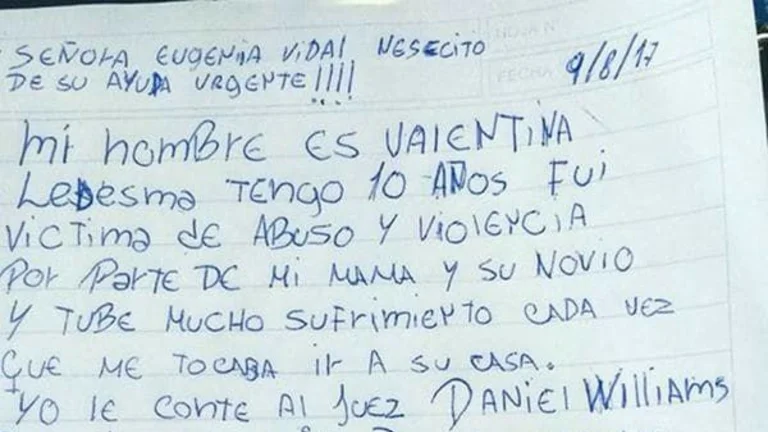 SEÑOLA EUGENIA VIDAL NESECITO
DE SU AYUDA URGENTE!!!!
FECHA 9/8/17
MI NOMBRE ES VALENTINA
LEDESMA TENGO 10 AÑOS FUI
VICTIMA DE ABUSO Y VIOLENCIA
POR PARTE DE MI MAMA Y SU NOVIO
Y TUBE MUCHO SUFRIMIENTO CADA VEZ
QUE ME TOCABA IR A SU CASA.
YO LE CONTE AL JUEZ DANIEL WILLIAMS